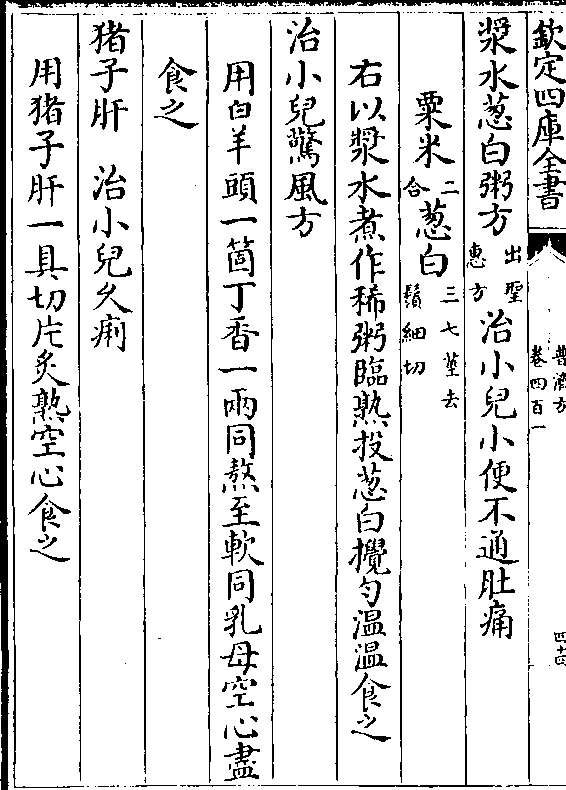 欽定四庫全書
普濟方
卷四百一
四十四
漿水葱白粥方出聖惠方治小兒小便不通肚痛
粟米二合葱白三七莖去鬚細切
右以漿水煮作稀粥臨熟投葱白攪匀温温食之
治小兒驚風方
用白羊頭一箇丁香一兩同熬至軟同乳母空心盡
食之
猪子肝 治小兒久痢
用猪子肝一具切片炙熟空心食之